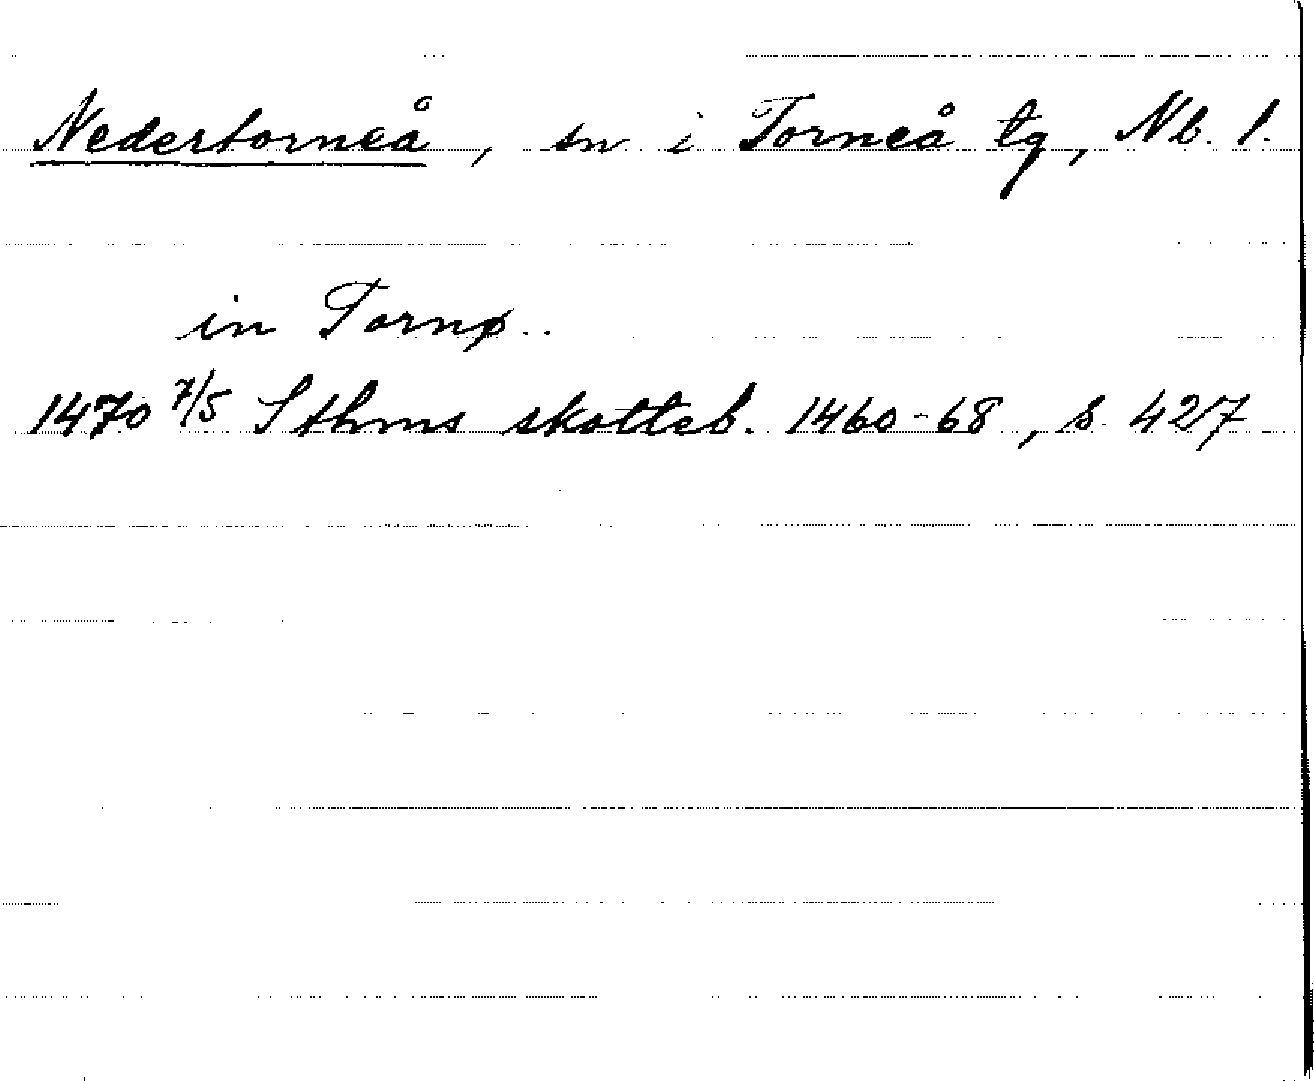 Nedertorneå, sn i Torneå tg, Nb. l.
in Tornø..
1470 7/5 Sthms skotteb. 1460-68, s 427